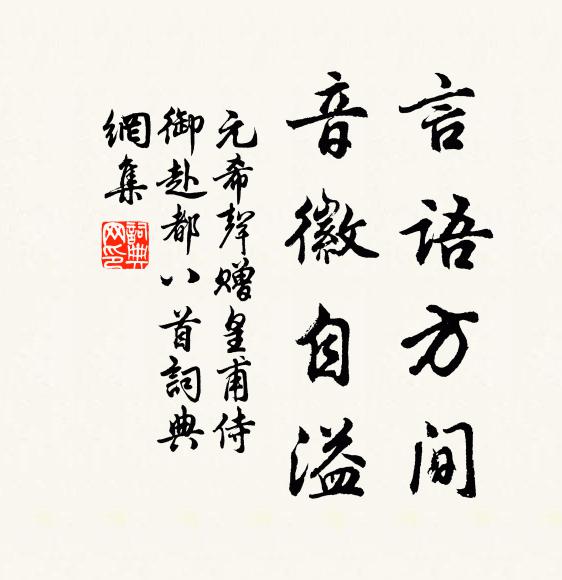 言語方間
音徽自溢
元希聲贈皇甫侍
御赴都八首詞典
網集
詞典
网印